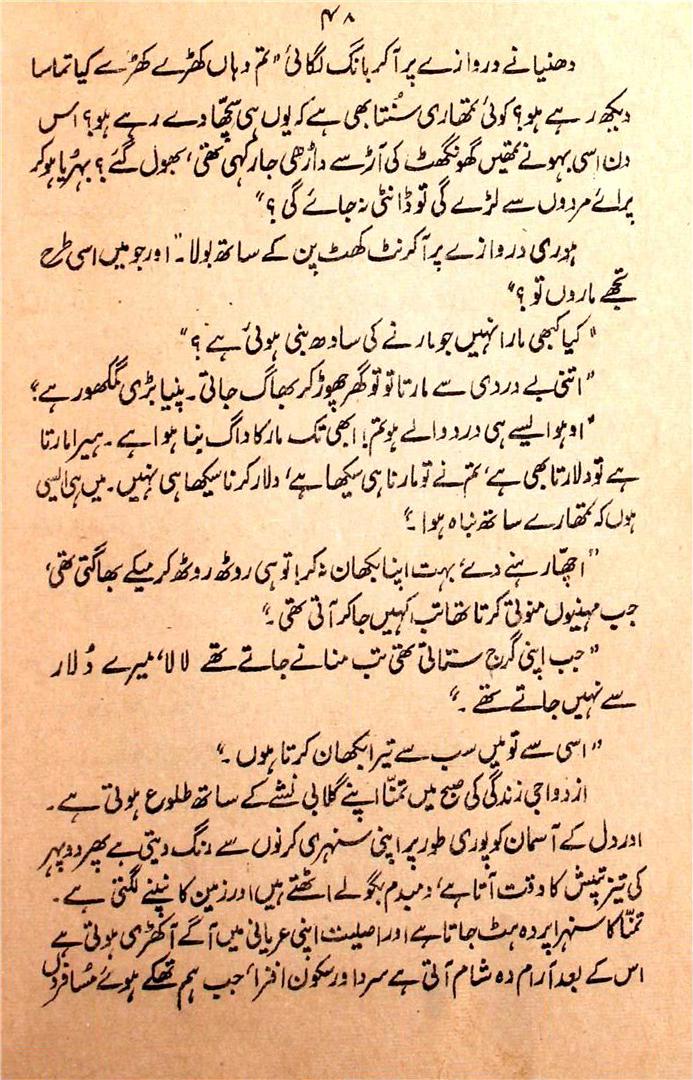 ۴۸
دھنیا نے دروازے پر آکر بانگ لگائی ”تم وہاں کھڑے کھڑے کیا تماسا
دیکھ رہے ہو؟ کوئی تمھاری سُنتا بھی ہے کہ یوں ہی سِچّھا دے رہے ہو؟ اس
دن اسی بہو نے تمھیں گھونگھٹ کی آڑ سے داڑھی جار کہی تھی، بھول گئے؟ بہُریا ہوکر
پرائے مردوں سے لڑے گی تو ڈانٹی نہ جائے گی؟“
ہوری دروازے پر آکر نٹ کھٹ پن کے ساتھ بولا۔ ”اور جو میں اسی طرح
تجھے ماروں تو؟“
”کیا کبھی مارا نہیں جو مارنے کی سادھ بنی ہوئی ہے؟“
”اتنی بے دردی سے مارتا تو تو گھر چھوڑ کر بھاگ جاتی۔ پنیا بڑی گمکھور ہے“
”اوہو ایسے ہی درد والے ہو تم! ابھی تک مار کا داگ بنا ہوا ہے۔ ہیرا مارتا
ہے تو دلارتا بھی ہے، تم نے تو مارنا ہی سیکھا ہے، دلار کرنا سیکھا ہی نہیں۔ میں ہی ایسی
ہوں کہ تمھارے ساتھ نباہ ہوا۔“
”اچھّا رہنے دے، بہت اپنا بکھان نہ کر! تو ہی روٹھ روٹھ کر میکے بھاگتی تھی،
جب مہینوں منوتی کرتا تھا تب کہیں جاکر آتی تھی۔“
”جب اپنی گرج ستاتی تھی تب منانے جاتے تھے لالا، میرے دُلار
سے نہیں جاتے تھے۔“
”اسی سے تو میں سب سے تیرا بکھان کرتا ہوں۔“
ازدواجی زندگی کی صبح میں تمنّا اپنے گلابی نشے کے ساتھ طلوع ہوتی ہے۔
اور دل کے آسمان کو پوری طور پر اپنی سنہری کرنوں سے رنگ دیتی ہے پھر دوپہر
کی تیز تپش کا وقت آتا ہے، دمبدم بگولے اٹھتے ہیں اور زمین کانپنے لگتی ہے۔
تمنّا کا سنہرا پردہ ہٹ جاتا ہے اور اصلیت اپنی عریانی میں آگے آکھڑی ہوتی ہے
اس کے بعد آرام دہ شام آتی ہے سرد اور سکون افزا، جب ہم تھکے ہوئے مسافروں